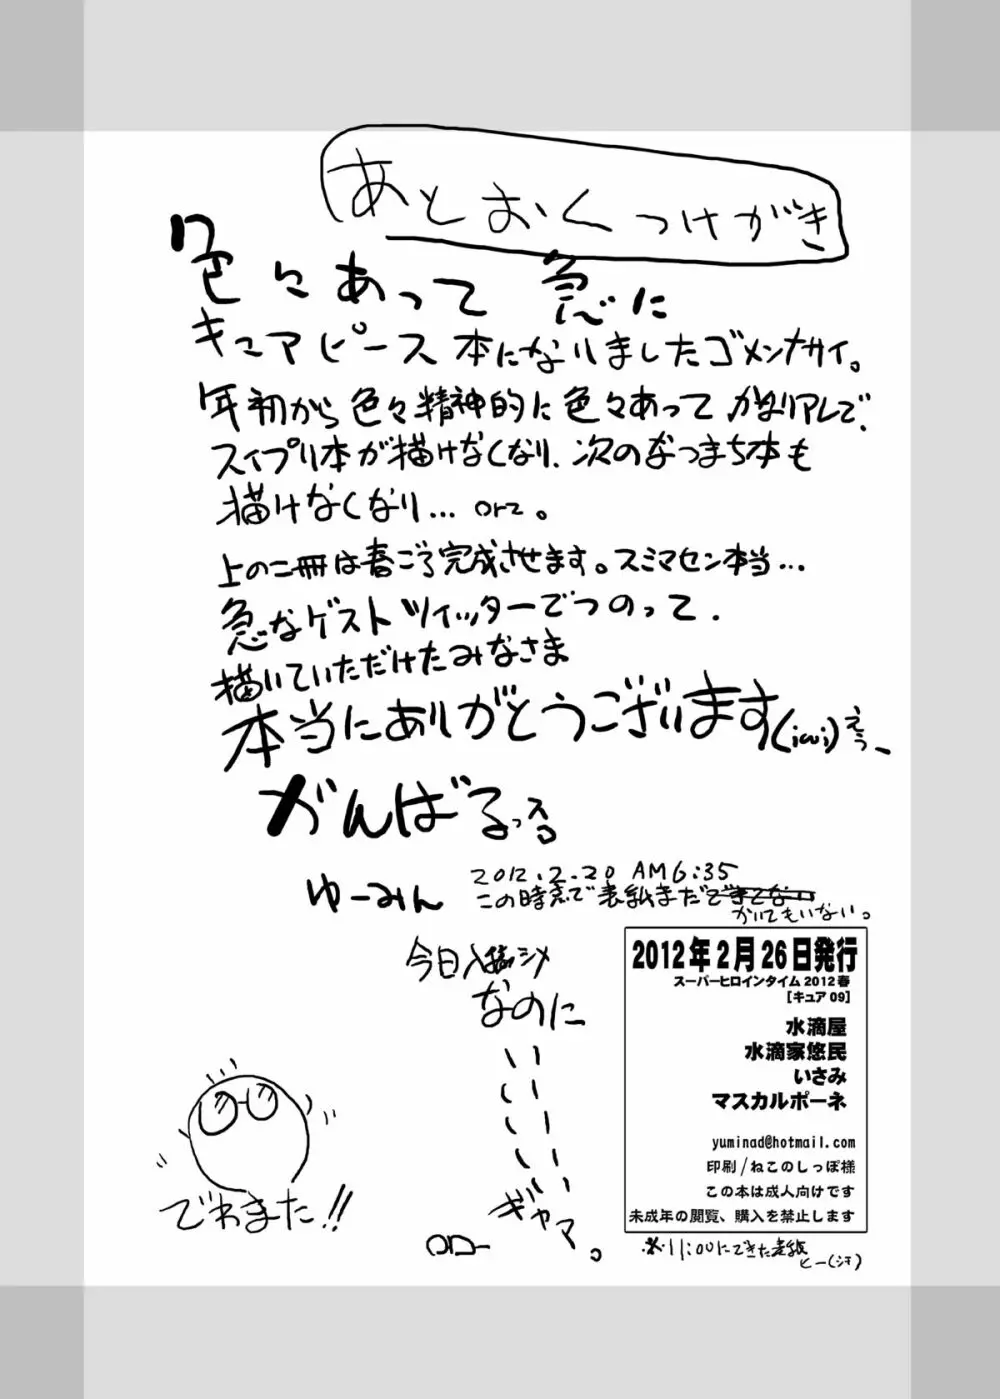 あとおくつけがき
色々あって 急に
キュアピース本になりましたゴメンナサイ。
年初から色々精神的に色々あって かなりアレで、
スイプリ本が描けなくなり、次のなつまち本も
描けなくなり… orz。
上の二冊は春ごろ完成させます。スミマセン本当…
急なゲストツイッターでつのって、
描いていただけたみなさま
本当にありがとうございます(;ω;)えぅ、
がんばるっスる
ゆーみん
2012.2.20 AM6:35
この時点で表紙まだできてない
かいてもいない。
今日入稿シメ
なのに
、、、、、、
、、、、、、
ギャア。
でわまた!!
2012年2月26日発行
スーパーヒロインタイム2012春
[キュア09]
水滴屋
水滴家悠民
いさみ
マスカルポーネ
yuminad@hotmail.com
印刷/ねこのしっぽ様
この本は成人向けです
未成年の閲覧、購入を禁止します
※11:00にできた表紙